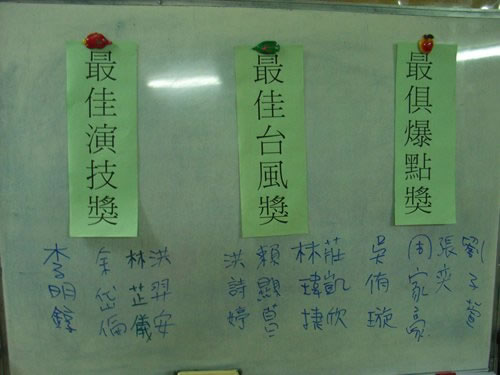 最俱爆點獎
劉子萱
張奕
周家豪
吳侑璇
最佳台風獎
莊凱欣
林瑋捷
賴顯
洪詩婷
最佳演技獎
洪羿安
林芷儀
余岱倫
李明